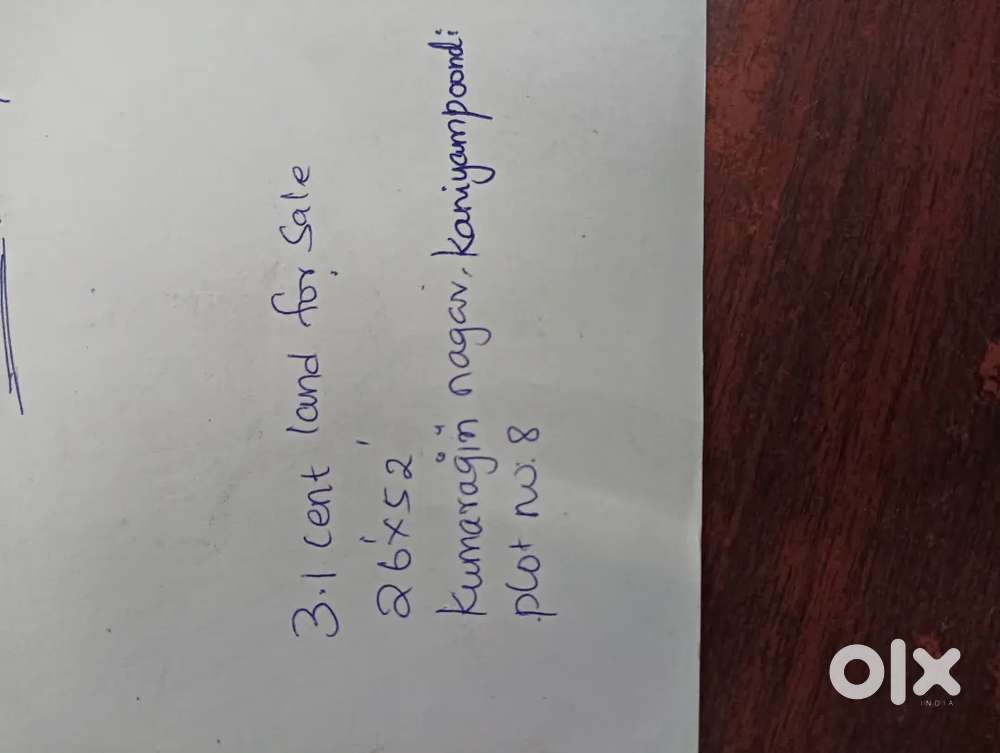 3.1 cent land for sale
26'x52'
kumaragiri nagar, kaniyampoondi
plot no. 8
olx
INDIA